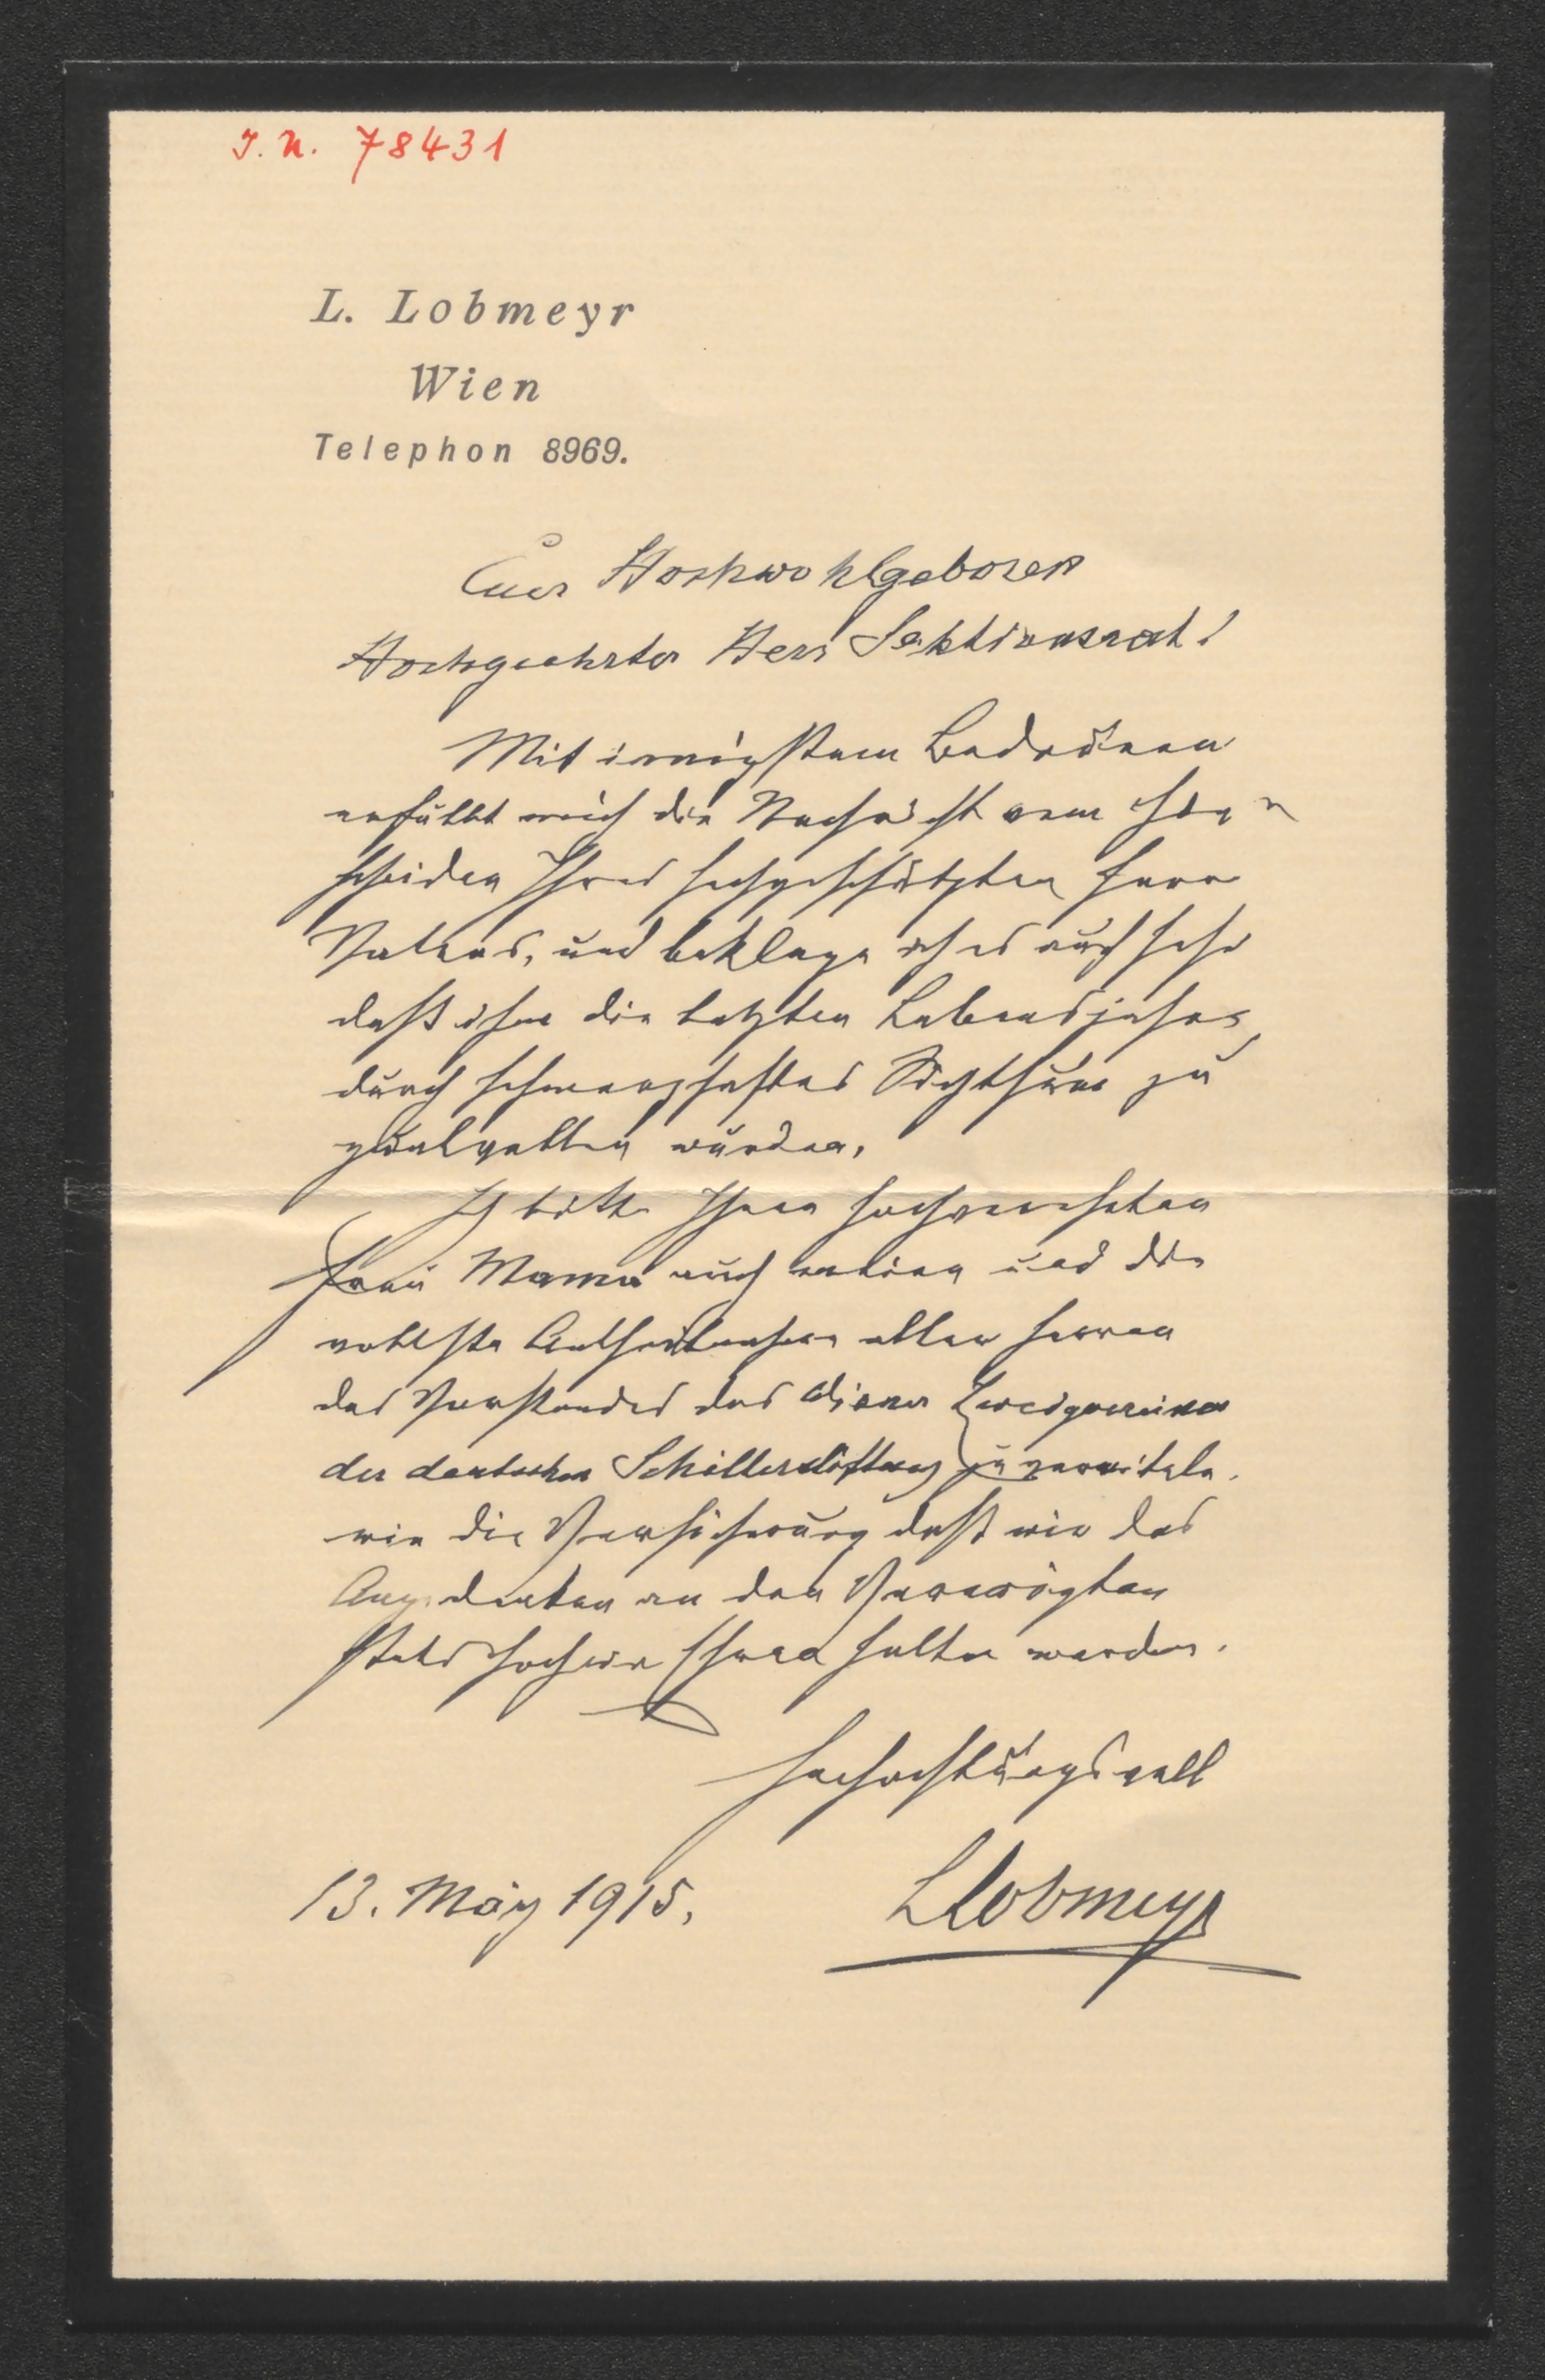 I. N. 78431
L. Lobmeyr
Wien
Telephon 8969.
Euer Hochwohlgeboren
Hochgeehrter Herr Sektionsrat!
Mit innigstem Bedauern
erfüllt mich die Nachricht vom Hin
scheiden Ihres hochgeschätzten Herrn
Vaters, und beklage ich es auch sehr
daß ihm die letzten Lebensjahre
durch schmerzhaftes Sichthum zu
wurden.
Ich bitte Ihrer hochverehrten
Frau Mama auch meine und die
vollste Antheilnahme aller Herren
des Vorstandes des Wiener Zweigvereines
der deutschen Schillerstiftung zu vermitteln.
wie die Versicherung daß wir das
Angedenken an den Verewigten
stets hoch in Ehren halten werden.
Hochachtungsvoll
13. May 1915.
LLobmeyr